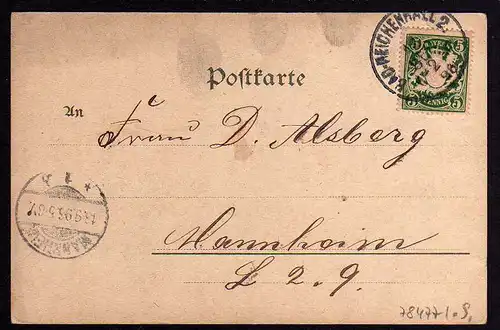 BAD-REICHENHALL 2.
BAYERN
5 5
PFENNIG
Postkarte
An
Frau D. Alsberg
Mannheim
L 2. 9.
78477 I. S.